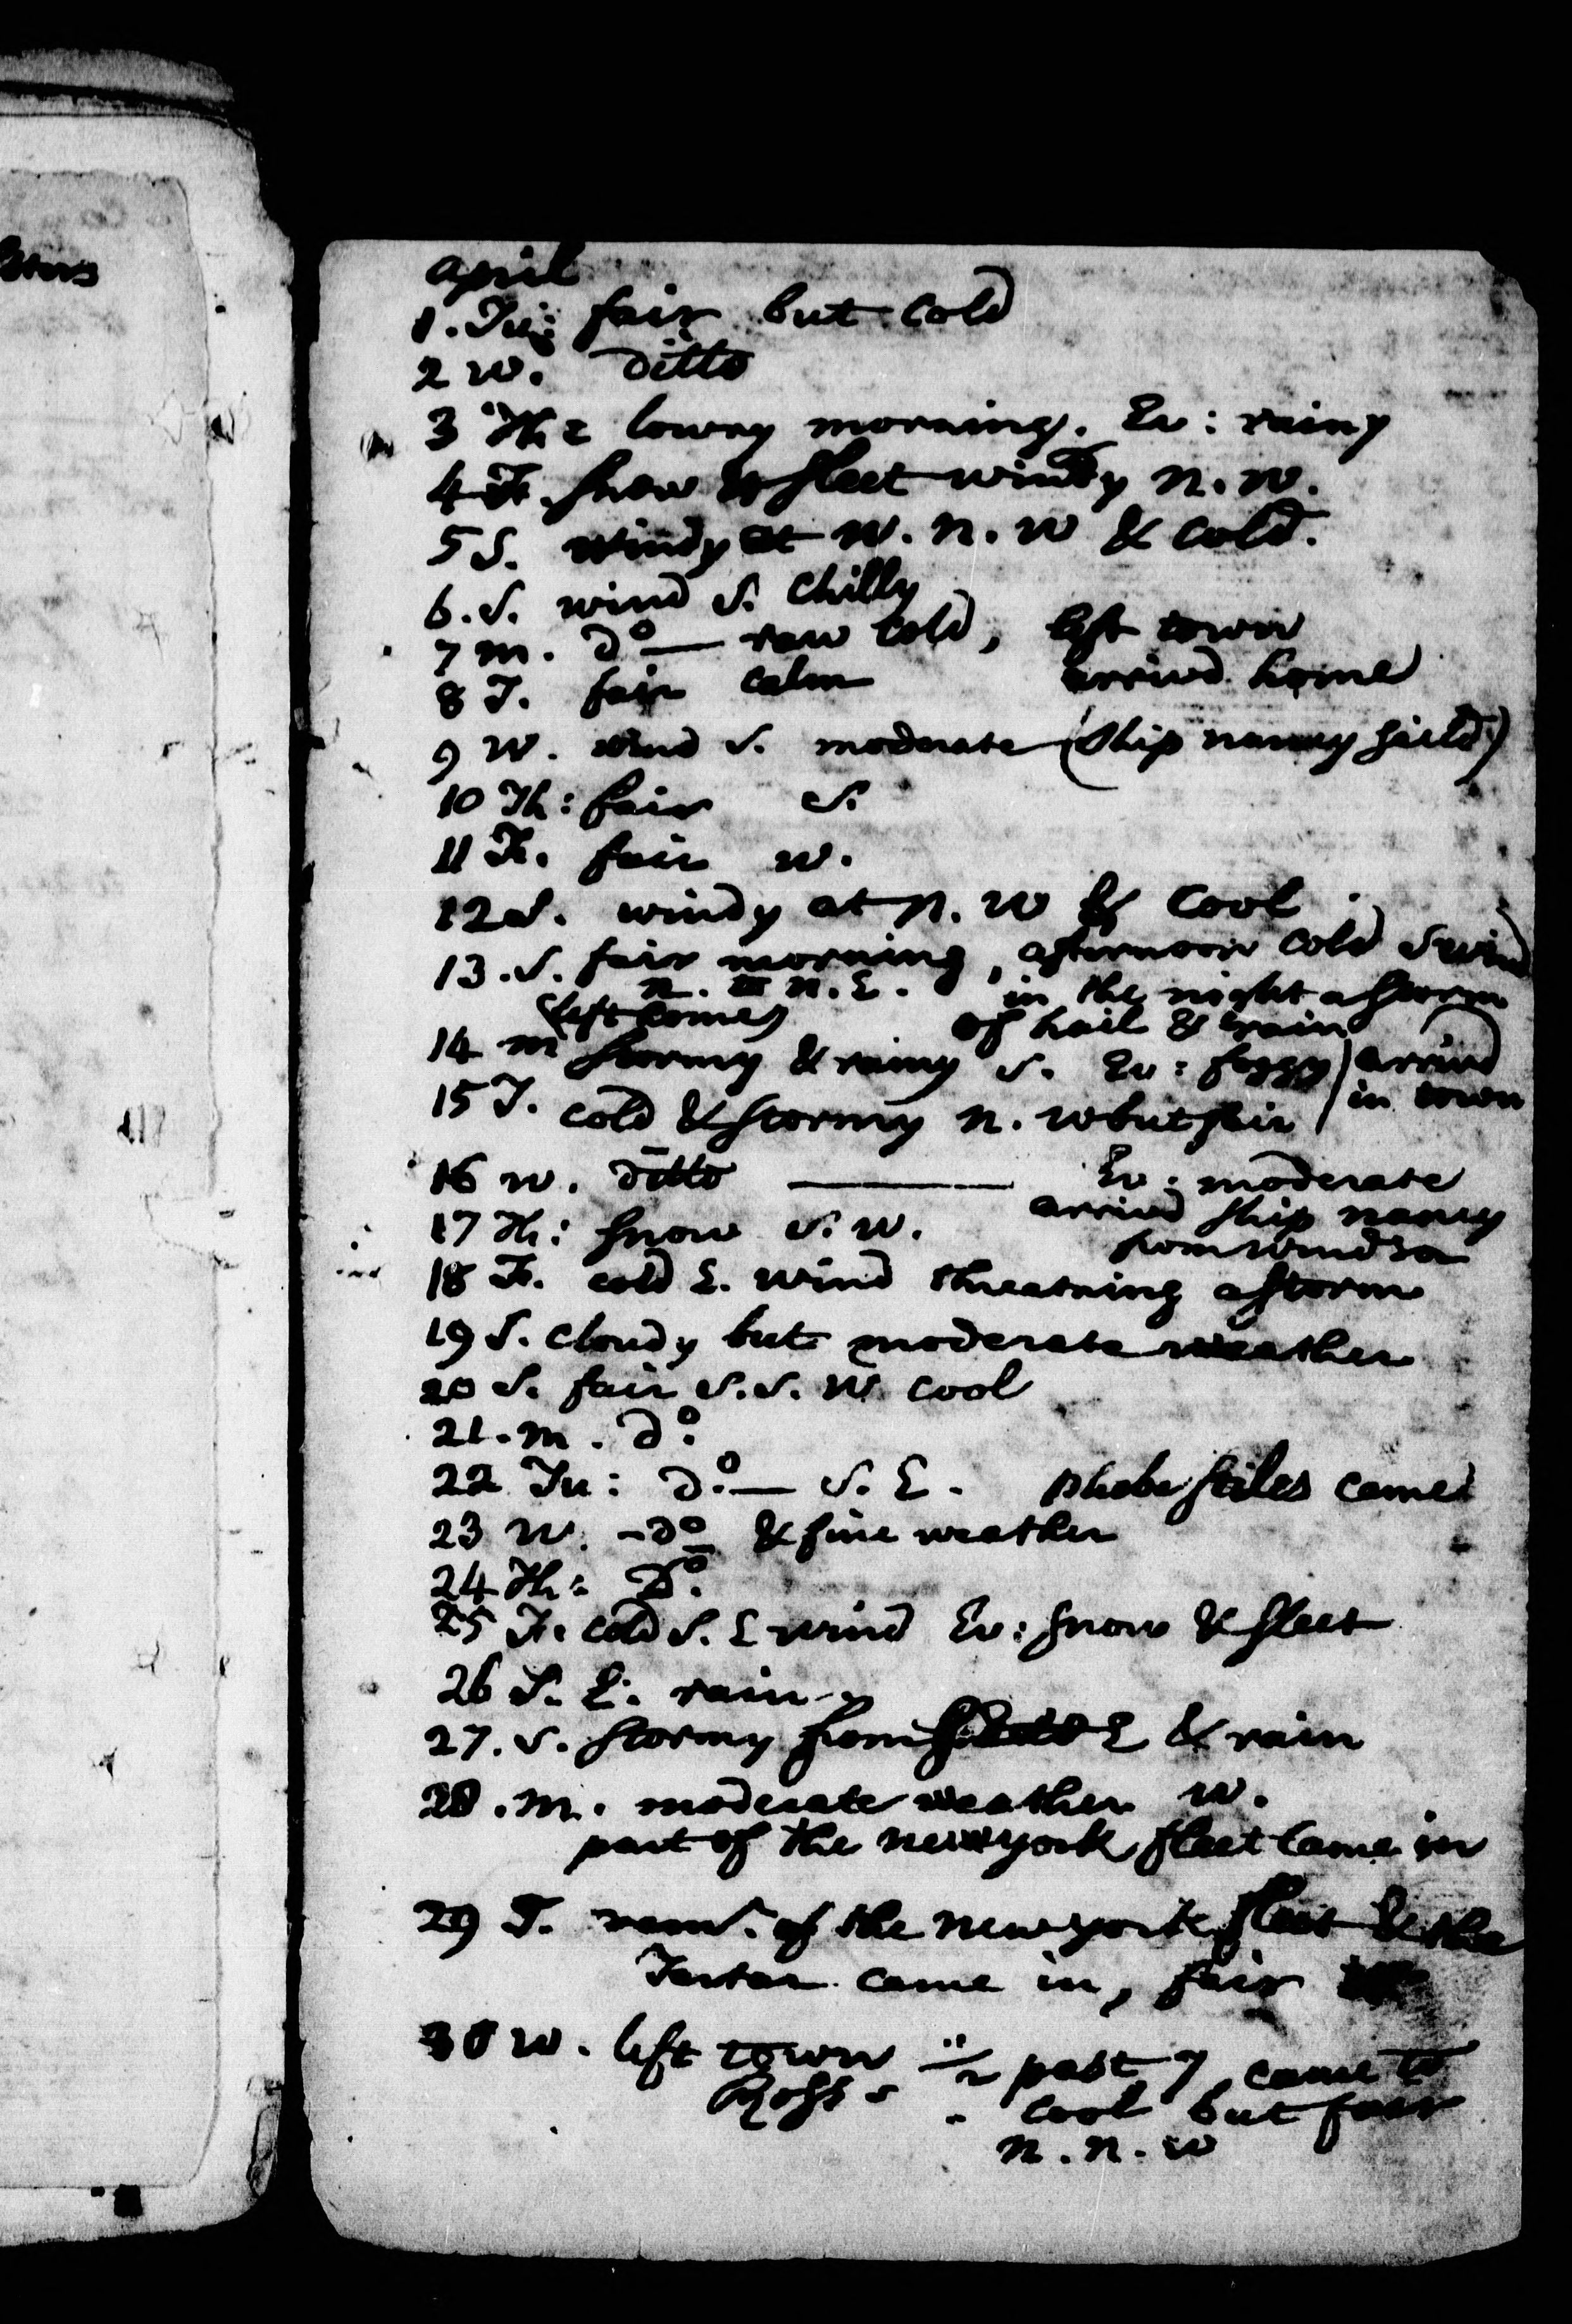 April
1. Tu: fair but cold
2 W. ditto
3 Th: lowry morning. Ev: rainy
4 F. snow & sleet windy N. W.
5 S. windy at W. N. W & cold.
6. S. wind S. chilly
7 M. do — raw cold, left town
8 T. fair calm arrived home
9 W. wind S. moderate (Ship nancy saild)
10 Th: fair S.
11 F. fair W.
12 S. windy at N. W & Cool
13. S. fair morning, afternoon cold & wind
N. to N. E. in the night a storm
of hail & rain
(left home)
14 M stormy & rainy S. Ev: foggy
15 T. cold & stormy N. W but fair
arrived
in town
16 W. ditto — Ev: moderate
17 Th: snow S. W. arrived ship nancy
from windsor
18 F. cold E. wind threatning a storm
19 S. cloudy but moderate weather
20 S. fair S. S. W cool
21. M. do.
22 Tu: do. — S. E. phebe stiles came
23 W. - do & fine weather
24 Th: Do.
25 F. cold S. E wind Ev: snow & sleet
26 S. E. rainy
27. S. stormy from E & rain
28. M. moderate weather W.
part of the newyork fleet came in
29 T. remr. of the newyork fleet & the
Tartar came in, fair
30 W. left town ½ past 7, came to
Ross's cool but fair
N. N. W